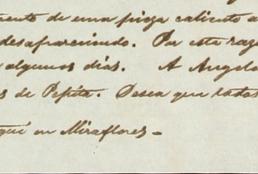 mento de una pieza caliente a
desapareciendo. Por esta razo
algunos dias. A Angela
s de Pepita. Desea que todos
qui en Miraflores-